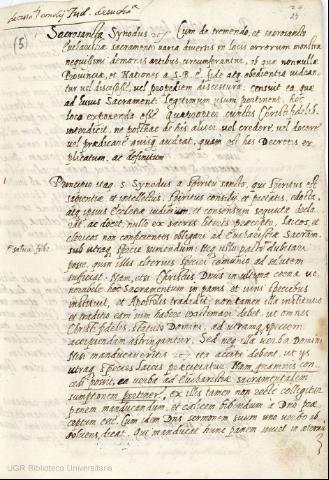 24
23
(5)
Sacrosancta Synodus Cum de tremendo, et sacrosancto
Eucharistiæ sacramento varia diversis in locis errorum monstra
nequissimi demonis artibus circumferantur, ob quæ nonnullis
Provinciis, et Nationes a S. R. E. fide atq obedientia videantur
vel discessisse, vel propediem discessuræ. censuit ea, quæ
ad huius Sacramenti legitimum usum pertinent, hoc
loco exponenda esse. Quapropter cunctis Christi fidelibus
interdicit, ne posthac de his aliter vel credere, vel docere
vel prædicare quisq audeat, quam est his Decretis ex-
plicatum, at definitum
Principio itaq S Synodus a Spiritu sancto, qui Spiritus est
sapientiæ et intellectus, Spiritus consilii et pietatis, edocta,
atq ipsius Ecclesiæ iudicium et consensum sequuta decla-
rat, ac docet, nullo ex sacris literis præcepto, laicos, et
clericos non conficientes obligari ad Eucharistiæ Sacram.
sub utraq specie sumendum: Neq ullo pacto dubitari
posse, quin illis alterius speciei communio ad salutem
sufficiat. Nam, etsi Christus Dnus in ultima coena ve-
nerabile hoc Sacramentum in panis et vini speciebus
instituit, et Apostolis tradidit, non tamen illa institutio
et traditio eam vim habere existimari debet, ut omnes
Christi fideles, statuto Domini, ad utramq speciem
accipiendam astringantur. Sed neq illa verba Domini
Nisi manducaveritis ita accipi debent, ut ys
utraq species laicis præceptatur. Nam, quamvis con-
cedi possit, ea verba ad Eucharistiæ sacramentalem
sumptionem pertinere, ex illis tamen non recte colligitur
panem manducandum, et calicem bibendum a Dno præ-
ceptum esse. Cum idem Dns sermonem suum uno verbo ab-
solvens, dicat. Qui manducat hunc panem vivet in æternum
UGR Biblioteca Universitaria